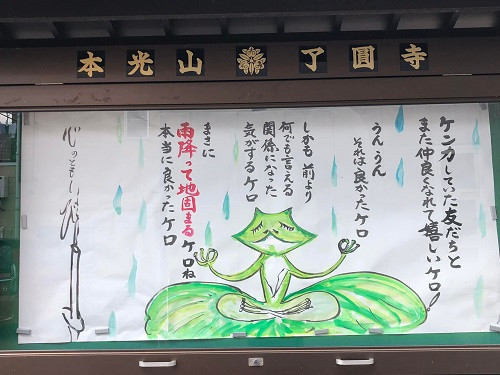 本光山 了圓寺
ケンカしていた友だちと
また仲良くなれて嬉しいケロ!
うん、うん
それは良かったケロ
しかも前より
何でも言える
関係になった
気がするケロ
まさに
雨降って地固まるケロね
本当に良かったケロ
心のともしび